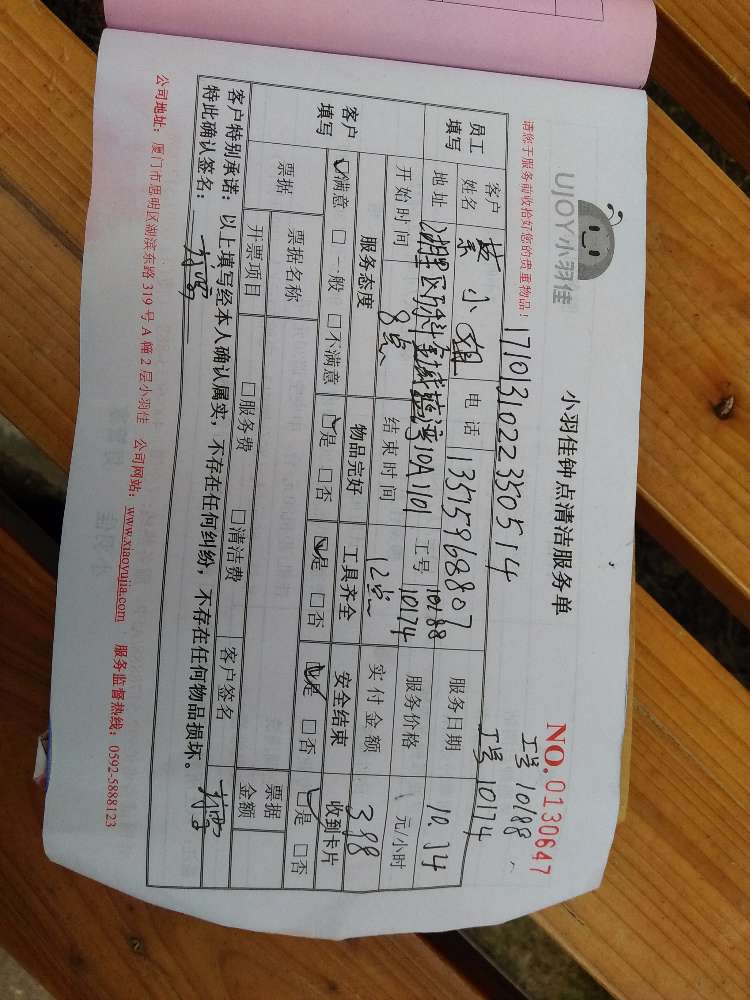 UJOY小羽佳
小羽佳钟点清洁服务单
NO.0130647
请您于服务前收拾好您的贵重物品!
1710131022350514
工号 10188
工号 10174
员工填写
客户姓名 小姐 电话 13515968807 服务日期 10.14
地址 湖里区 10A101 工号 10188 10174 服务价格 元/小时
开始时间 8点 结束时间 12点 实付金额 398
客户填写
服务态度 物品完好 工具齐全 安全结束 收到卡片
☑满意 □一般 □不满意 ☑是 □否 ☑是 □否 ☑是 □否 ☑是 □否
票据 票据名称 □服务费 □清洁费 客户签名 票据金额
开票项目
客户特别承诺:以上填写经本人确认属实,不存在任何纠纷,不存在任何物品损坏。
特此确认签名:
公司地址:厦门市思明区湖滨东路 319 号 A 幢 2 层小羽佳 公司网站:www.xiaoyujia.com 服务监督热线:0592-5888123